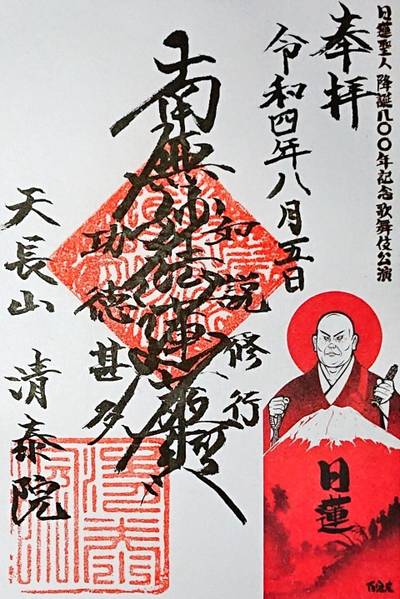 日蓮聖人降誕八〇〇年記念歌舞伎公演
奉拝
令和四年八月五日
如説修行
南無妙法蓮華経
功徳甚多
天長山 清泰院
日蓮